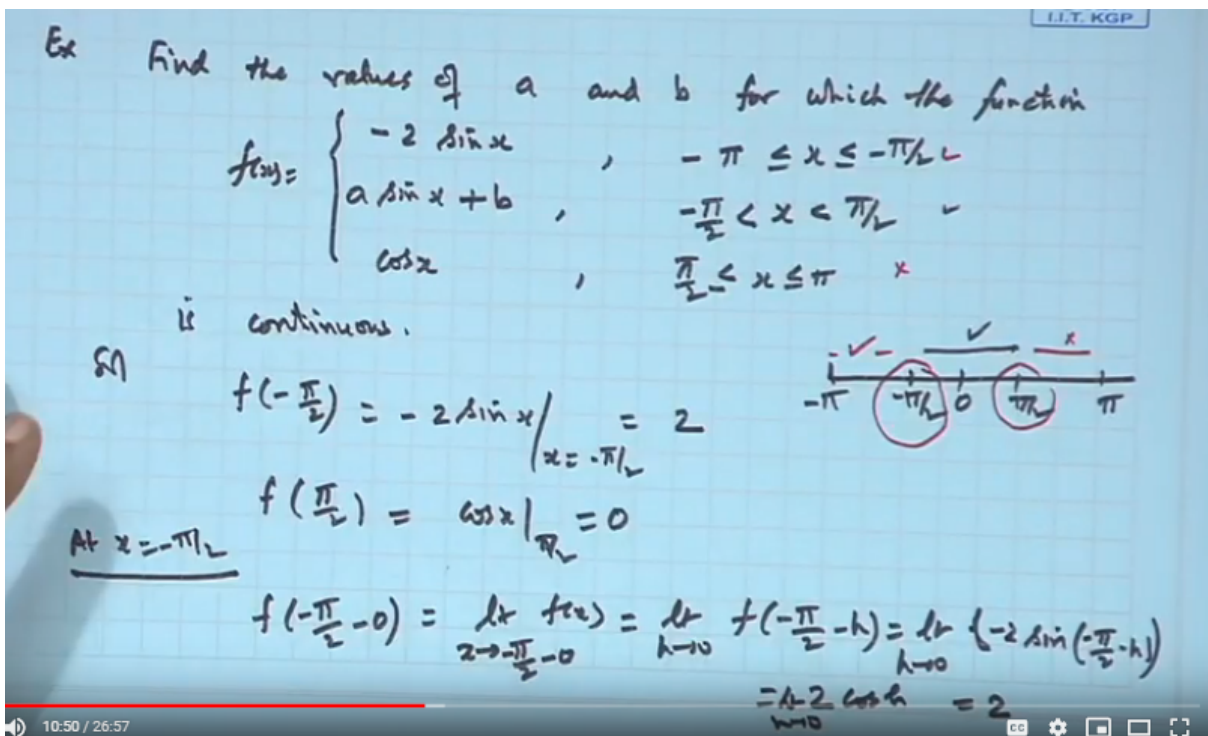 I.I.T. KGP
Ex Find the values of a and b for which the function
f(x) = { -2 sin x , -π ≤ x ≤ -π/2 ✓
a sin x + b , -π/2 < x < π/2 ✓
cos x , π/2 ≤ x ≤ π ×
is continuous.
✓ ✓ ×
-π -π/2 0 π/2 π
Sol
f(-π/2) = -2 sin x |x = -π/2 = 2
f(π/2) = cos x |π/2 = 0
At x = -π/2
f(-π/2 - 0) = lt x→-π/2-0 f(x) = lt h→0 f(-π/2 - h) = lt h→0 {-2 sin(-π/2 - h)}
= lt h→0 2 cos h = 2
10:50 / 26:57
CC